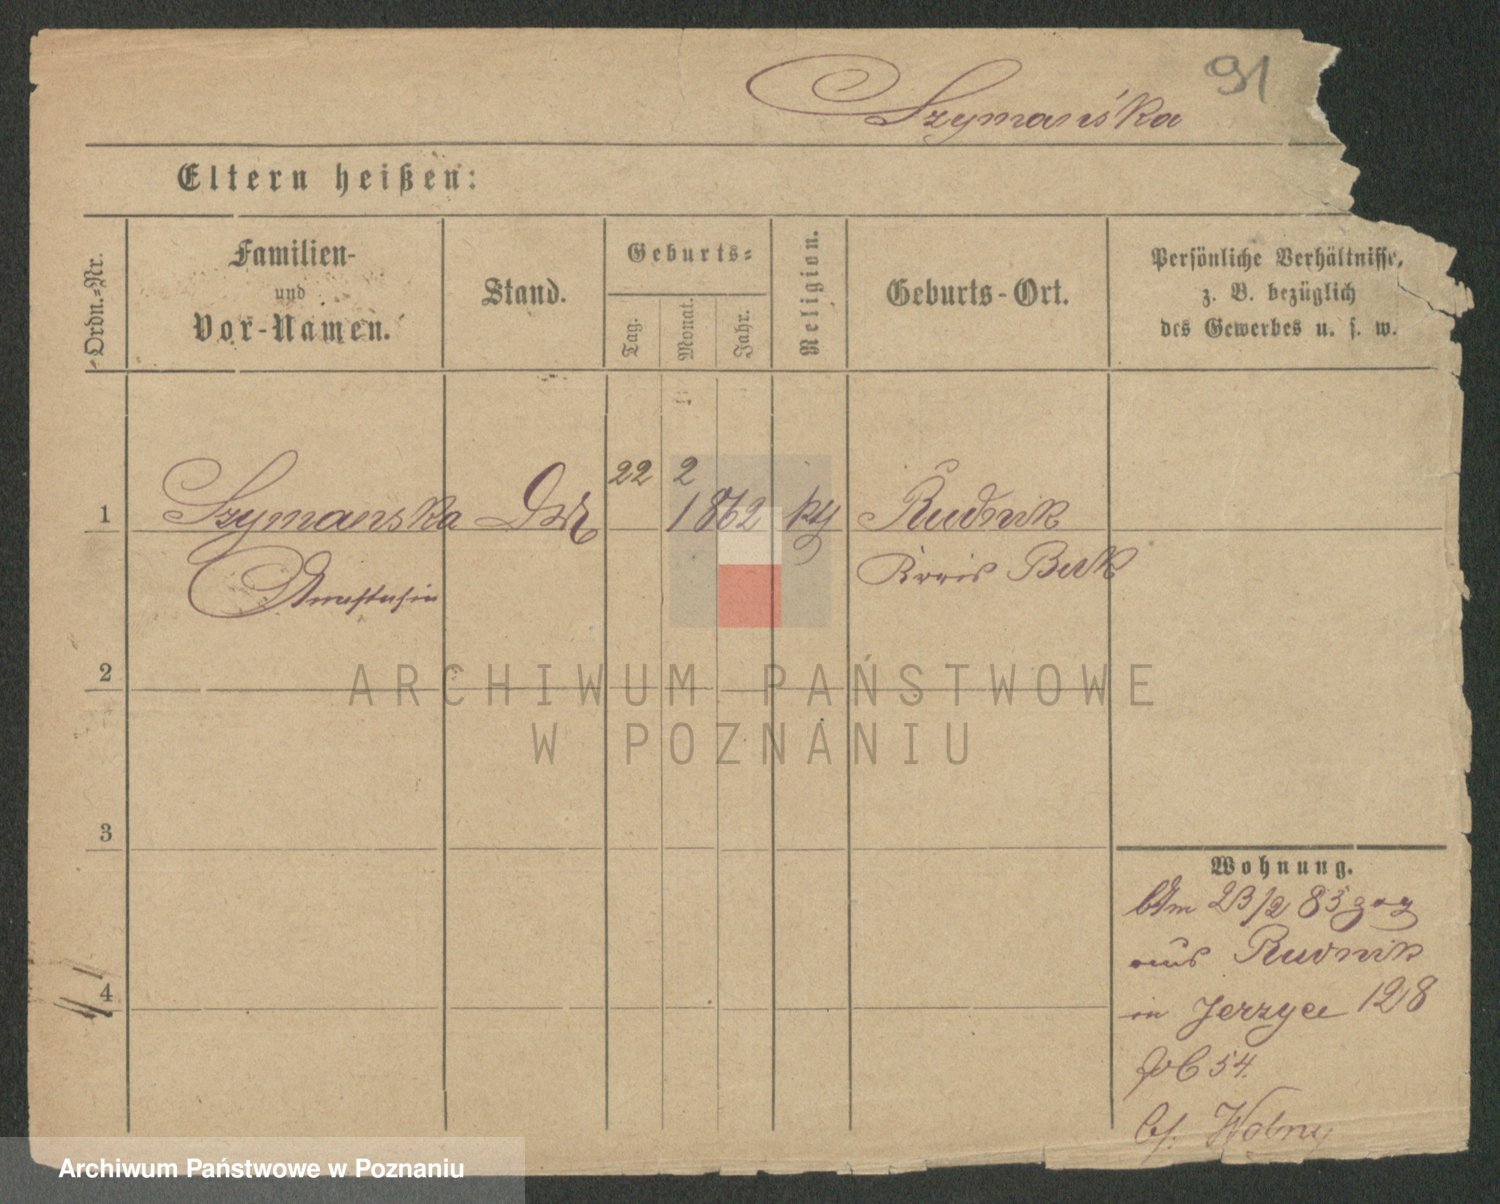 91
Szymańska
Eltern heißen:
Ordn.-Nr.
Familien-
und
Vor-Namen.
Stand.
Geburts-
Tag.
Monat.
Jahr.
Religion.
Geburts-Ort.
Persönliche Verhältnisse,
z. B. bezüglich
des Gewerbes u. s. w.
22 2
1 Szymanska 1862 Rudnik
Anastasia Kreis Buk
2
3
4
Wohnung.
23/2 83 zog
aus Rudnik
in Jerzyce 128
54.
bei Wolny
ARCHIWUM PAŃSTWOWE
W POZNANIU
Archiwum Państwowe w Poznaniu